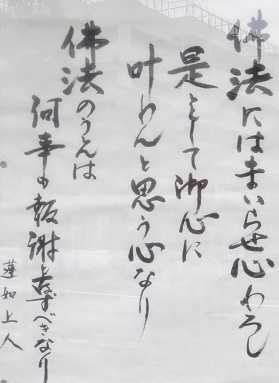 佛法にはまいらせ心わろし
是をして御心に
叶わんと思う心なり
佛法のうえは
何事も報謝と存ずべきなり
蓮如上人